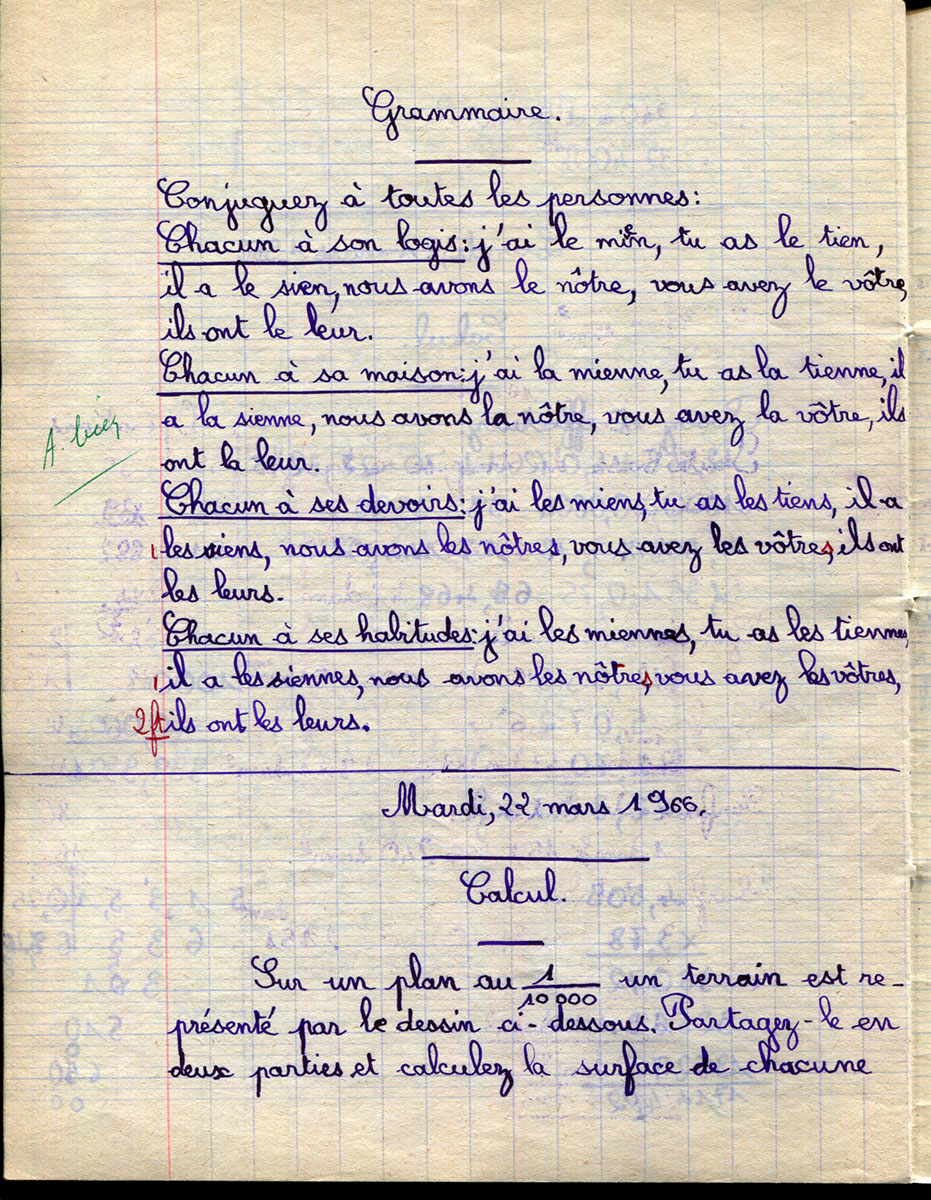 Grammaire.
Conjuguez à toutes les personnes:
Chacun à son logis: j'ai le mien, tu as le tien,
il a le sien, nous avons le nôtre, vous avez le vôtre,
ils ont le leur.
Chacun à sa maison: j'ai la mienne, tu as la tienne, il
a la sienne, nous avons la nôtre, vous avez la vôtre, ils
ont la leur.
Chacun à ses devoirs: j'ai les miens, tu as les tiens, il a
1 les siens, nous avons les nôtres, vous avez les vôtres, ils ont
les leurs.
Chacun à ses habitudes: j'ai les miennes, tu as les tiennes,
1 il a les siennes, nous avons les nôtres, vous avez les vôtres,
2 ft ils ont les leurs.
Mardi, 22 mars 1966.
Calcul.
Sur un plan au 1/10 000 un terrain est re-
présenté par le dessin ci-dessous. Partagez-le en
deux parties et calculez la surface de chacune